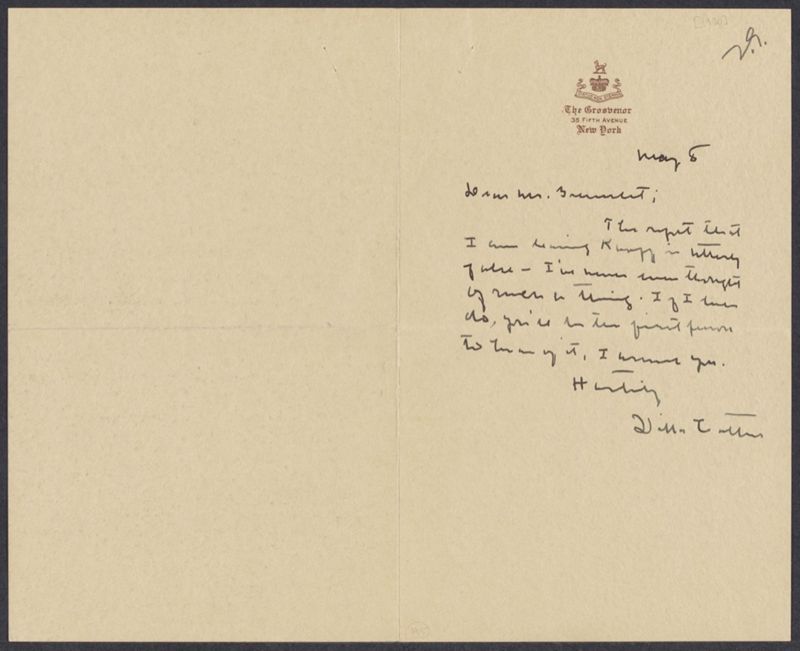 The Grosvenor
35 Fifth Avenue
New York
May 8
Dear Mr. Greenslet;
The report that
I am leaving Knopf is utterly
false – I've never even thought
of such a thing. If I ever
do, you'll be the first person
to hear of it, I assure you.
Hastily
Willa Cather